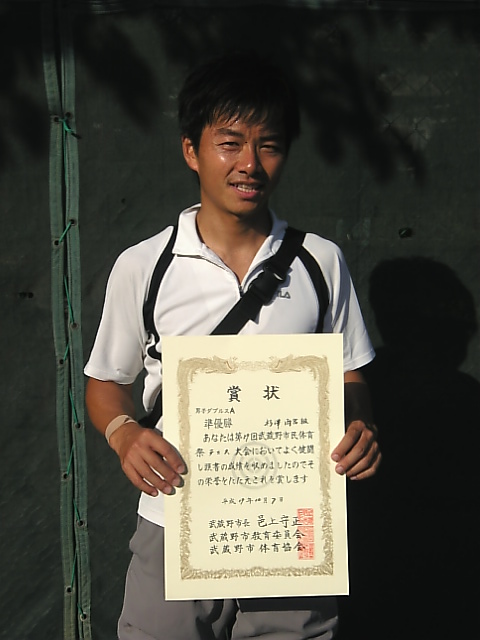 賞状
男子ダブルスA
準優勝
あなたは第 回武蔵野市民体育
祭テニス大会においてよく健闘
し頭書の成績を収めましたのでそ
の栄誉をたたえこれを賞します
平成 年 月 日
武蔵野市長 邑上守正
武蔵野市教育委員会
武蔵野市体育協会